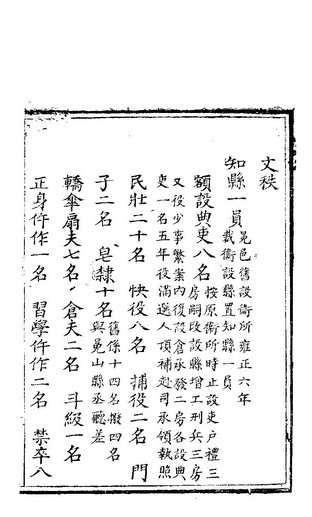 文秩
知縣一員 冕邑舊設衛所雍正六年
裁衛設縣置知縣一員
額設典吏八名 按原衛所時止設吏戶禮三
房嗣改設縣增工刑兵三房
又役少事繁案內復設倉承發二房各設典
吏一名五年役滿選人頂補赴司承領執照
民壯二十名 快役八名 捕役二名 門
子二名 皂隸十名 舊係十四名撥四名
與冕山縣丞聽差
轎傘扇夫七名 倉夫二名 斗級一名
正身仵作一名 習學仵作二名 禁卒八